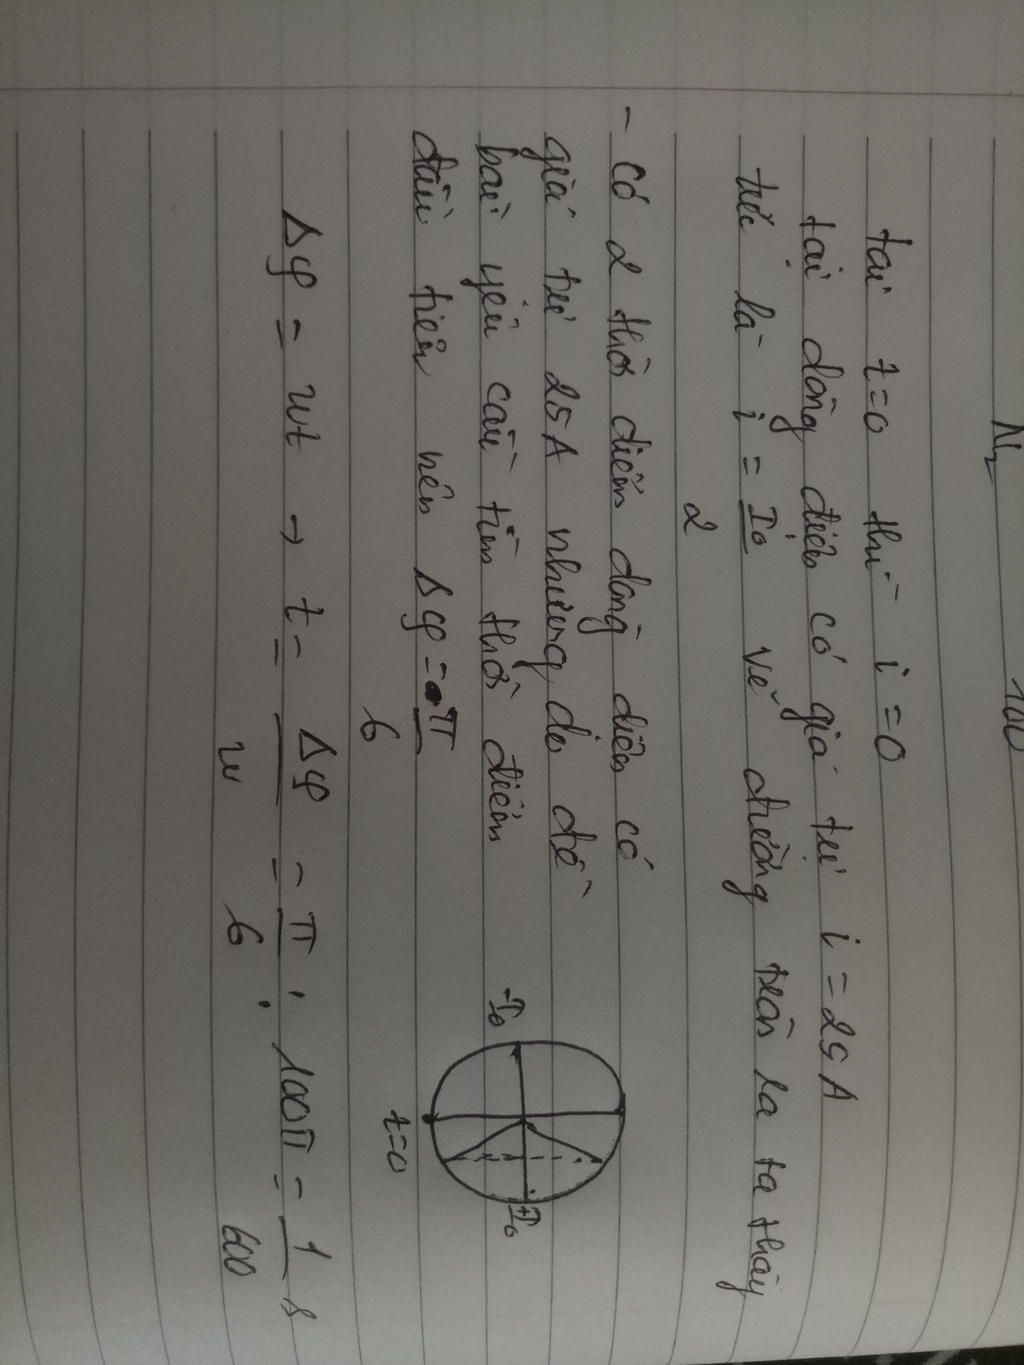 N₂ 100
tại t=0 thì i=0
tại dòng điện có giá trị i = 25A
tức là i = I₀/2 vẽ đường tròn ra ta thấy
- Có 2 thời điểm dòng điện có
giá trị 25A nhưng do đề
bài yêu cầu tìm thời điểm
đầu tiên nên Δφ = π/6
-I₀ +I₀
t=0
Δφ = wt → t = Δφ/w = π/6 : 100π = 1/600 s